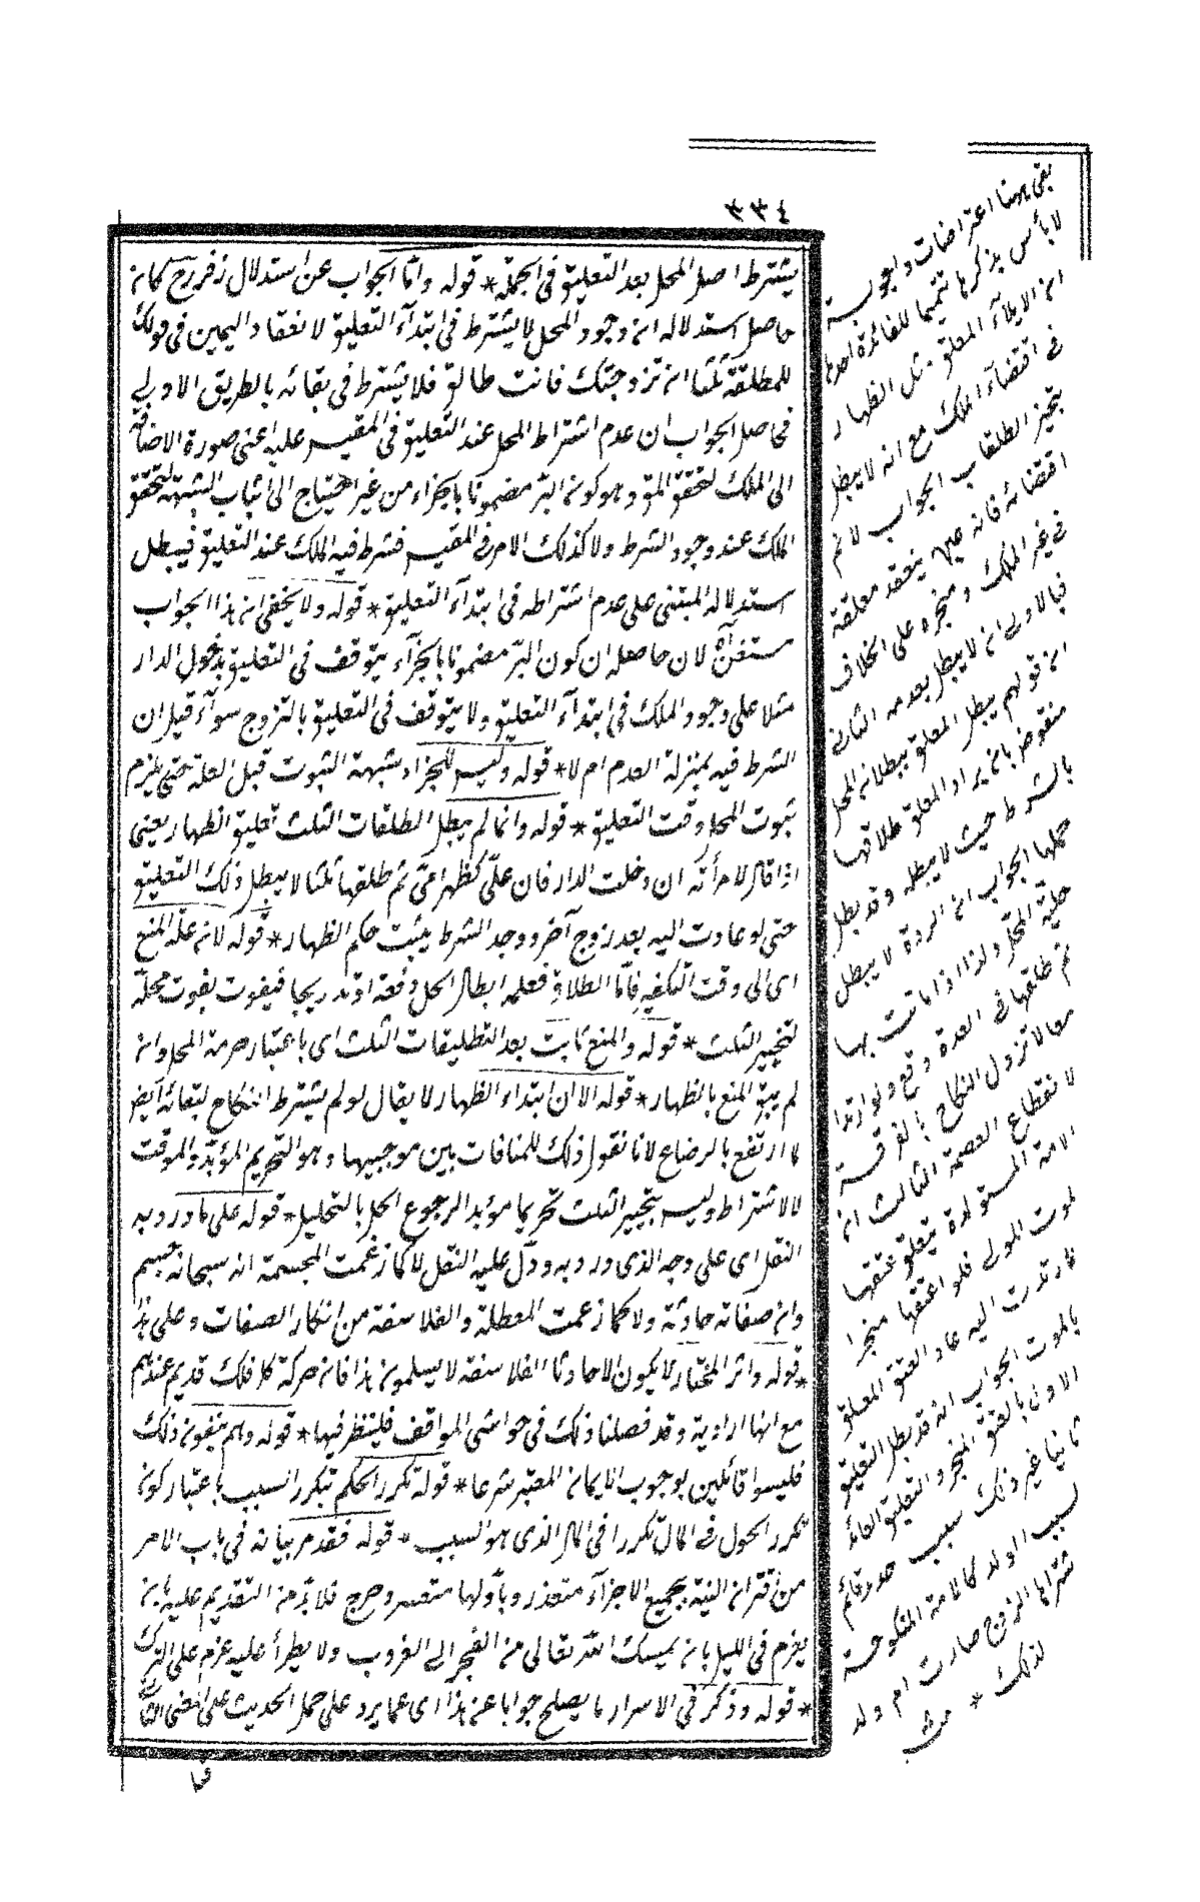 ٣٣٤
يشترط اصل المحل بعد التعليق فى الجملة * قوله واما الجواب عن استدلال زفر رح كانه
حاصل استدلاله ان وجود المحل لا يشترط فى ابتدآء التعليق لانعقاد اليمين فى قولك
للمطلقة ثلثا ان تزوجتك فانت طالق فلا يشترط فى بقائه بالطريق الاولى
فحاصل الجواب ان عدم اشتراط المحل عند التعليق فى المقيس عليه اعنى صورة الاضافة
الى الملك لتحقق المق وهو كون البر مضمونا بالجزاء من غير احتياج الى اثبات الشبهة لتحقق
الملك عند وجود الشرط ولا كذلك الامر فى المقيس فشرط فيه الملك عند التعليق فيبطل
استدلاله المبتنى على عدم اشتراطه فى ابتدآء التعليق * قوله ولا يخفى ان هذا الجواب
لان حاصله ان كون البر مضمونا بالجزآء يتوقف فى التعليق بدخول الدار
مثلا على وجود الملك فى ابتدآء التعليق ولا يتوقف فى التعليق بالتزوج سوآء قيل ان
الشرط فيه بمنزلة العدم ام لا * قوله وليس للجزاء شبهة الثبوت قبل العلة حتى يلزم
ثبوت المحل وقت التعليق * قوله وانما لم يبطل الطلقات الثلث تعليق الظهار يعنى
اذا قال لامرأته ان دخلت الدار فان علىّ كظهر امى ثم طلقها ثلثا لا يبطل ذلك التعليق
حتى لو عادت اليه بعد زوج آخر ووجد الشرط يثبت حكم الظهار * قوله لانه علة المنع
اى الى وقت التكفير فامّا الطلاق فعمله ابطال الحل دفعة او تدريجا فيفوت بفوت محله
لتنجيز الثلث * قوله والمنع ثابت بعد التطليقات الثلث اى باعتبار حرمة المحل وانه
لم يبق المنع بالظهار * قوله الا ان ابتداء الظهار لا يقال لو لم يشترط النكاح لبقائه ايض
لما ارتفع بالرضاع لانا نقول ذلك للمنافات بين موجبيها وهو التحريم المؤبد والموقت
لا لاشتراط وليس بتنجيز الثلث تحريما مؤبدا لرجوع الحل بالتحليل * قوله على ما ورد به
النقل اى على وجه الذى ورد به ودل عليه النقل لا كما زعمت المجسمة انه سبحانه جسم
وان صفاته حادثة ولا كما زعمت المعطلة والفلاسفة من انكار الصفات وعلى هذا
* قوله واثر المختار لا يكون الا حادثا الفلاسفة لا يسلمون هذا فان حركة كل فلك قديم عندهم
مع انها ارادية وقد فصلنا ذلك فى حواشى المواقف فلينظر فيها * قوله وهم ينفون ذلك
فليسوا قائلين بوجوب الايمان المعتبر شرعا * قوله تكرر الحكم بتكرر السبب باعتبار كون
تكرر الحول فى المال تكررا فى المال الذى هو السبب * قوله فقد مر بيانه فى باب الامر
من اقتران النية بجميع الاجزآء متعذر وباولها متعسر وحرج فلا بد من التقديم عليه بان
يعزم فى الليل بان يمسك لله تعالى من الفجر الى الغروب ولا يطرأ عليه عزم على الترك
* قوله وذكر فى الاسرار ما يصلح جوابا عن هذا اى عما يرد على حمل الحديث على
بقى ههنا اعتراضات واجوبة
لا بأس بذكرها تتميما للفائدة احدها
ان الايلآء المعلق مثل الظهار
فى اقتضآء الملك مع انه لا يبطل
بتنجيز الطلقات الجواب لا نم
اقتضائه فانه ينعقد معلقة
فى غير الملك ومنجزه على الخلاف
فبالاولى ان لا يبطل بعدمه الثانى
ان قولهم يبطل المعلق ببطلان المحل
منقوض بان يراد المعلق طلاقها
بالشرط حيث لا يبطله وقد بطل
حملها الجواب ان الردة لا يبطل
حلية المحل ولذا اذا بانت بها
ثم طلقها فى العدة وقع ولو ارتدا
معا لا تزول النكاح بالفرقة
لانقطاع العصمة الثالث ان
الامة المستولدة يتعلق عتقها
لموت المولى فلو اعتقها منجزا
فارتدت اليه عاد العتق المعلق
بالموت الجواب انه قد بطل التعليق
الاول بالعتق المنجز والتعليق العائد
ثانيا غير ذلك سبب قائم
لسبب الولد كالامة المنكوحة
شراها الزوج صارت ام ولد
لذلك * منه